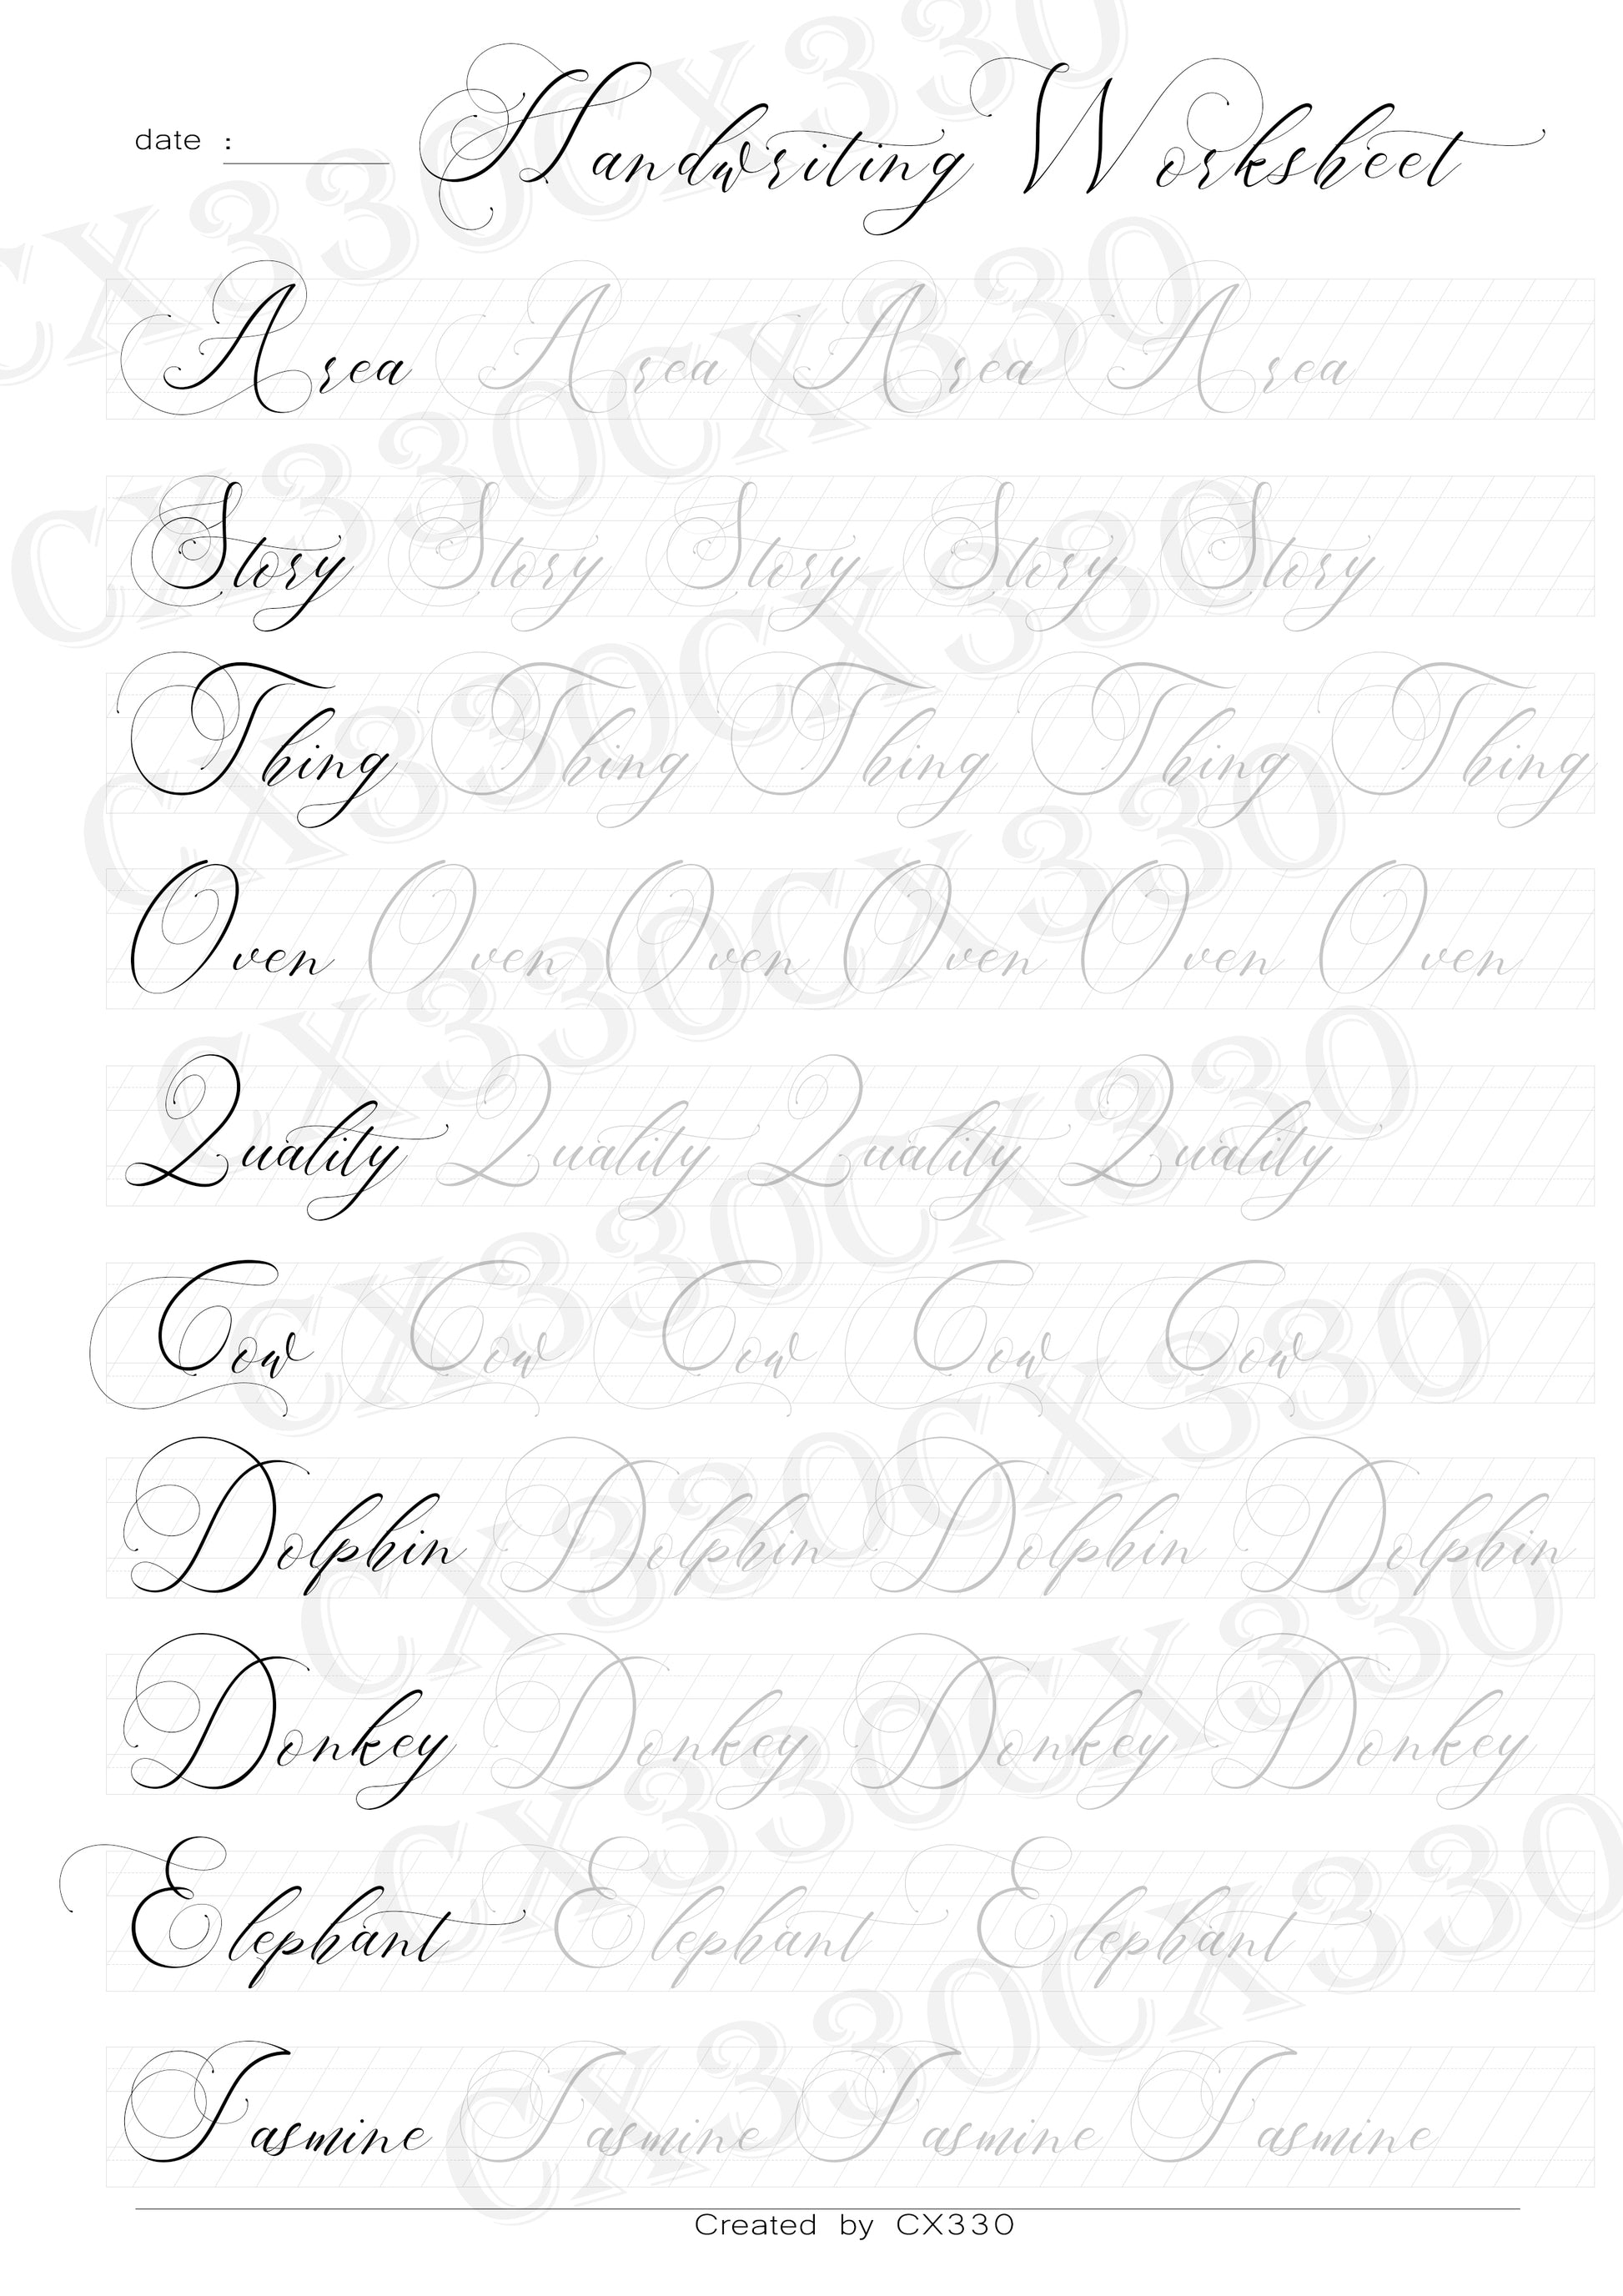 date : Handwriting Worksheet
Area Area Area Area
Story Story Story Story Story
Thing Thing Thing Thing Thing
Oven Oven Oven Oven Oven Oven
Quality Quality Quality Quality
Cow Cow Cow Cow Cow
Dolphin Dolphin Dolphin Dolphin
Donkey Donkey Donkey Donkey
Elephant Elephant Elephant
Jasmine Jasmine Jasmine Jasmine
Created by CX330
CX330CX330
CX330CX330
CX330CX330
CX330CX330
CX330CX330
CX330CX330
CX330CX330